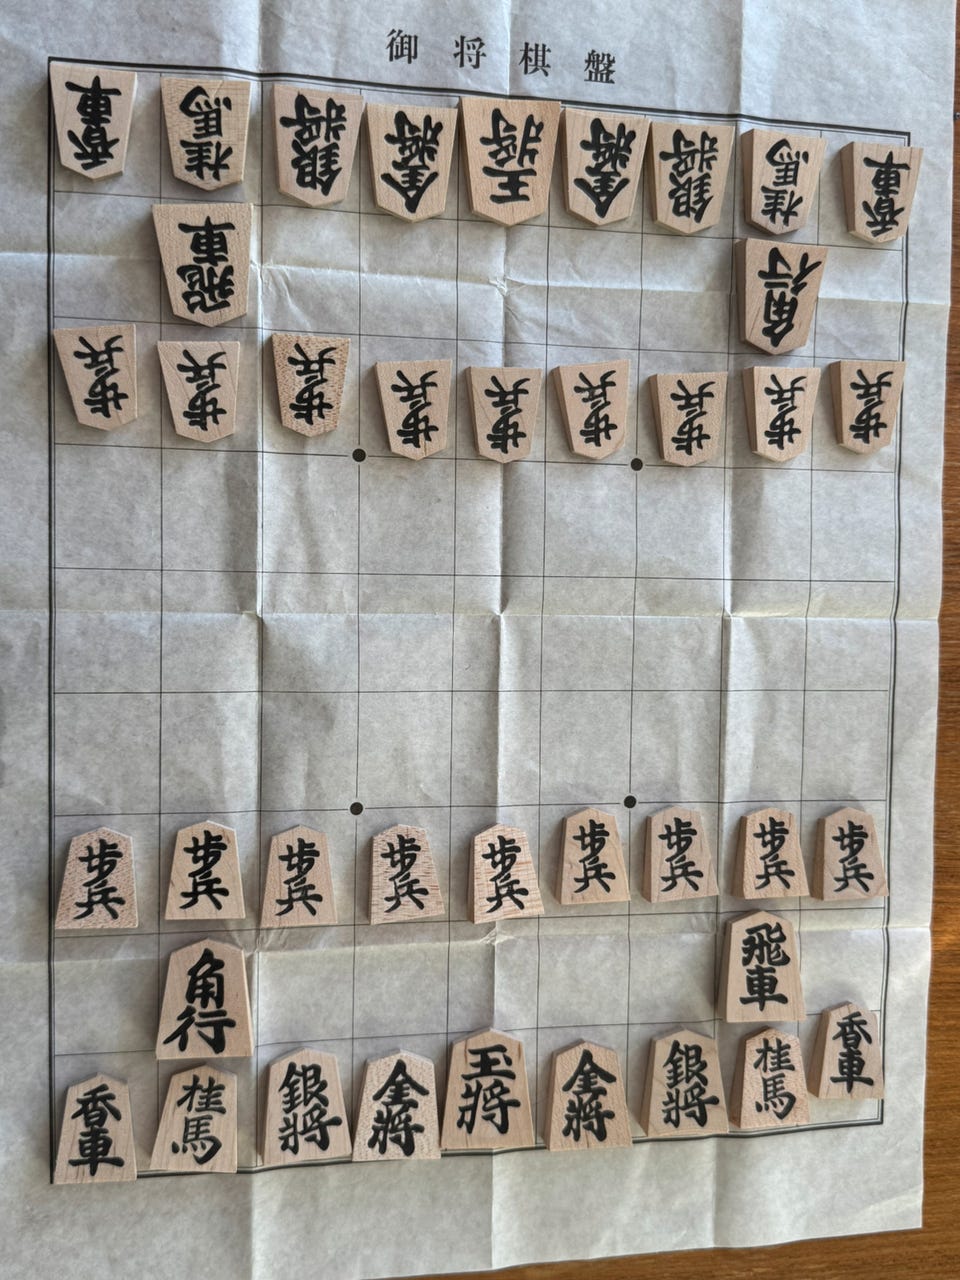 御将棋盤
香車 桂馬 銀將 金將 王將 金將 銀將 桂馬 香車
飛車 角行
歩兵 歩兵 歩兵 歩兵 歩兵 歩兵 歩兵 歩兵 歩兵
歩兵 歩兵 歩兵 歩兵 歩兵 歩兵 歩兵 歩兵 歩兵
角行 飛車
香車 桂馬 銀將 金將 玉將 金將 銀將 桂馬 香車